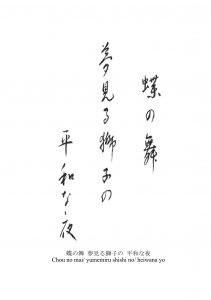 蝶の舞
夢見る獅子の
平和な夜
蝶の舞 夢見る獅子の 平和な夜
Chou no mai/ yumemiru shishi no/ heiwana yo